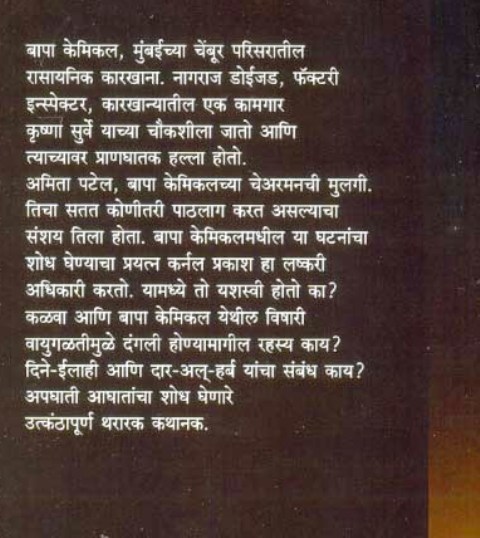 बापा केमिकल, मुंबईच्या चेंबूर परिसरातील
रासायनिक कारखाना. नागराज डोईजड, फॅक्टरी
इन्स्पेक्टर, कारखान्यातील एक कामगार
कृष्णा सुर्वे याच्या चौकशीला जातो आणि
त्याच्यावर प्राणघातक हल्ला होतो.
अमिता पटेल, बापा केमिकलच्या चेअरमनची मुलगी.
तिचा सतत कोणीतरी पाठलाग करत असल्याचा
संशय तिला होता. बापा केमिकलमधील या घटनांचा
शोध घेण्याचा प्रयत्न कर्नल प्रकाश हा लष्करी
अधिकारी करतो. यामध्ये तो यशस्वी होतो का?
कळवा आणि बापा केमिकल येथील विषारी
वायुगळतीमुळे दंगली होण्यामागील रहस्य काय?
दिने-ईलाही आणि दार-अल्-हर्ब यांचा संबंध काय?
अपघाती आघातांचा शोध घेणारे
उत्कंठापूर्ण थरारक कथानक.